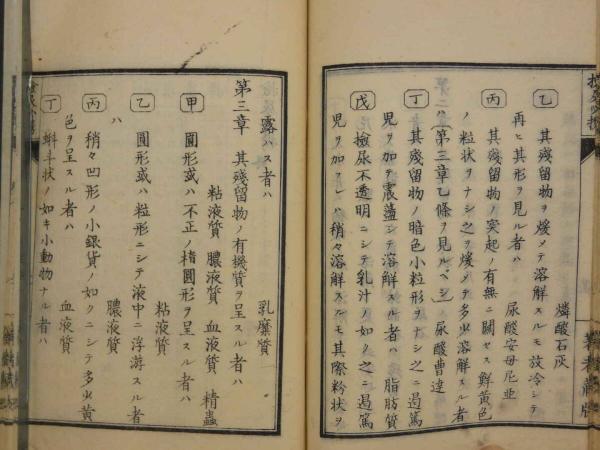 燐酸石灰
乙 其殘留物ヲ煖メテ溶解スルモ放冷シテ
再ヒ其形ヲ見ル者ハ 尿酸安母尼亜
丙 其殘留物ノ突起ノ有無ニ關セス鮮黄色
ノ粒状ヲナシ之ヲ煖メテ多少溶解スル者
ハ(第三章乙條ヲ見ルベシ) 尿酸曹達
丁 其殘留物ノ暗色小粒形ヲナシ之ニ㵎篤
兒ヲ加テ震盪シテ溶解スル者ハ 脂肪質
戊 撿尿不透明ニシテ乳汁ノ如ク之ニ
兒ヲ加フレハ稍々溶解スルモ其際粉状ヲ
露ハス者ハ 乳糜質
第三章 其殘留物ノ有機質ヲ呈スル者ハ
粘液質 膿液質 血液質 精蟲
甲 圓形或ハ不正ノ楕圓形ヲ呈スル者ハ
粘液質
乙 圓形或ハ粒形ニシテ液中ニ浮游スル者
ハ 膿液質
丙 稍々凹形ノ小銀貨ノ如クニシテ多少黄
色ヲ呈スル者ハ 血液質
丁 蝌斗状ノ如キ小動物ナル者ハ